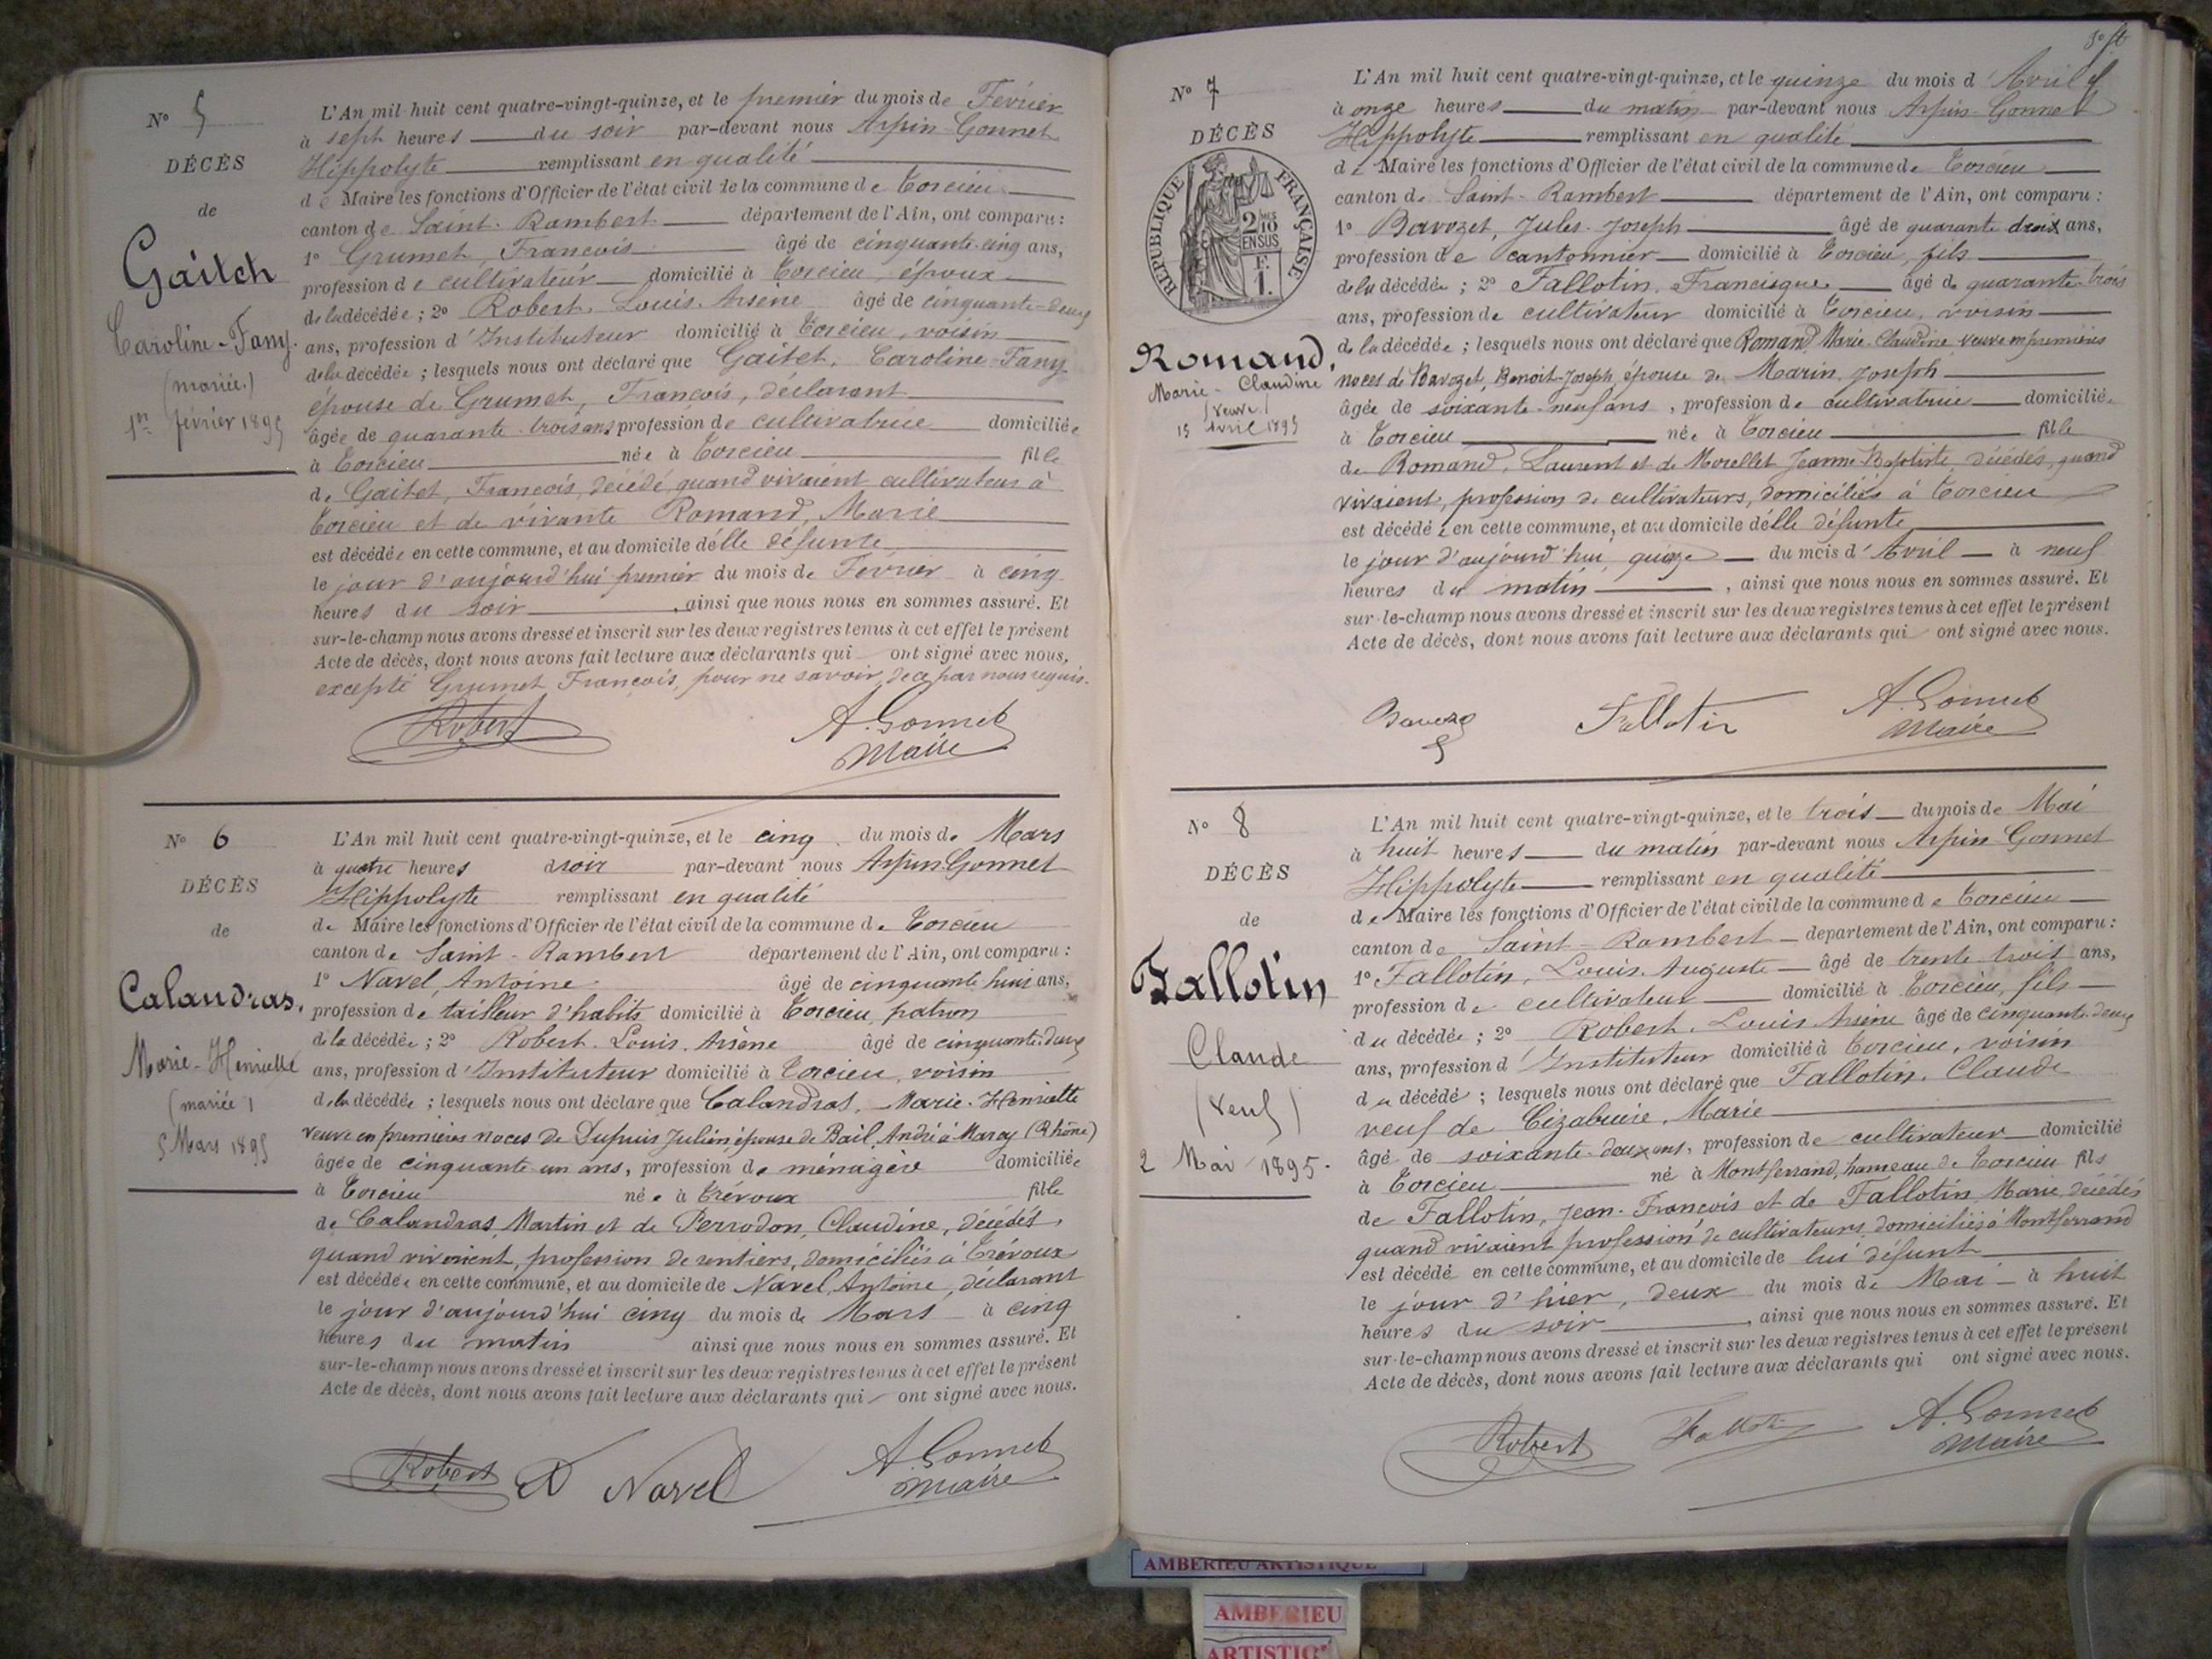 N° 5
DÉCÈS
de
Gaitet
Caroline-Fany.
(mariée)
1er février 1895
L'An mil huit cent quatre-vingt-quinze, et le premier du mois de Février
à sept heures du soir par-devant nous Arpin-Gonnet
Hippolyte remplissant en qualité
de Maire les fonctions d'Officier de l'état civil de la commune de Torcieu
canton de Saint-Rambert département de l'Ain, ont comparu :
1° Grumet, François âgé de cinquante-cinq ans,
profession de cultivateur domicilié à Torcieu, époux
de la décédée ; 2° Robert, Louis-Arsène âgé de cinquante-deux
ans, profession d'Instituteur domicilié à Torcieu, voisin
de la décédée ; lesquels nous ont déclaré que Gaitet, Caroline-Fany
épouse de Grumet, François, déclarant
âgée de quarante-trois ans profession de cultivatrice domiciliée
à Torcieu née à Torcieu fille
de Gaitet, François, décédé, quand vivaient cultivateur à
Torcieu et de vivante Romand, Marie
est décédée en cette commune, et au domicile de elle défunte
le jour d'aujourd'hui premier du mois de Février à cinq
heures du soir, ainsi que nous nous en sommes assuré. Et
sur-le-champ nous avons dressé et inscrit sur les deux registres tenus à cet effet le présent
Acte de décès, dont nous avons fait lecture aux déclarants qui ont signé avec nous,
excepté Grumet François, pour ne savoir, de ce par nous requis.
Robert A. Gonnet
Maire
N° 6
DÉCÈS
de
Calandras.
Marie-Henriette
(mariée)
5 Mars 1895
L'An mil huit cent quatre-vingt-quinze, et le cinq du mois de Mars
à quatre heures du soir par-devant nous Arpin-Gonnet
Hippolyte remplissant en qualité
de Maire les fonctions d'Officier de l'état civil de la commune de Torcieu
canton de Saint-Rambert département de l'Ain, ont comparu :
1° Navel, Antoine âgé de cinquante huit ans,
profession de tailleur d'habits domicilié à Torcieu, patron
de la décédée ; 2° Robert. Louis. Arsène âgé de cinquante-deux
ans, profession d'Instituteur domicilié à Torcieu, voisin
de la décédée ; lesquels nous ont déclaré que Calandras, Marie-Henriette
veuve en premières noces de Dupuis Julien, épouse de Bail, André à (Rhône)
âgée de cinquante-un ans, profession de ménagère domiciliée
à Torcieu née à Trévoux fille
de Calandras, Martin et de Perrodon, Claudine, décédés,
quand vivaient, profession de rentiers, domiciliés à Trévoux
est décédée en cette commune, et au domicile de Navel, Antoine, déclarant
le jour d'aujourd'hui cinq du mois de Mars à cinq
heures du matin ainsi que nous nous en sommes assuré. Et
sur-le-champ nous avons dressé et inscrit sur les deux registres tenus à cet effet le présent
Acte de décès, dont nous avons fait lecture aux déclarants qui ont signé avec nous.
Robert Navel A. Gonnet
Maire
N° 7
DÉCÈS
RÉPUBLIQUE FRANÇAISE
2/10 EN SUS
F. 1.
Romand,
Marie-Claudine
(veuve)
15 Avril 1895
L'An mil huit cent quatre-vingt-quinze, et le quinze du mois d'Avril
à onze heures du matin par-devant nous Arpin-Gonnet
Hippolyte remplissant en qualité
de Maire les fonctions d'Officier de l'état civil de la commune de Torcieu
canton de Saint-Rambert département de l'Ain, ont comparu :
1° Bavozet, Jules-Joseph âgé de quarante deux ans,
profession de cantonnier domicilié à Torcieu, fils
de la décédée ; 2° Fallotin, Francisque âgé de quarante-trois
ans, profession de cultivateur domicilié à Torcieu, voisin
de la décédée ; lesquels nous ont déclaré que Romand Marie-Claudine veuve en premières
noces de Bavozet, Benoit-Joseph, épouse de Marin Joseph
âgée de soixante-neuf ans, profession de cultivatrice domiciliée
à Torcieu née à Torcieu fille
de Romand, Laurent et de Morellet Jeanne-Baptiste, décédés, quand
vivaient, profession de cultivateurs, domiciliés à Torcieu
est décédée en cette commune, et au domicile de elle défunte
le jour d'aujourd'hui quinze du mois d'Avril à neuf
heures du matin, ainsi que nous nous en sommes assuré. Et
sur-le-champ nous avons dressé et inscrit sur les deux registres tenus à cet effet le présent
Acte de décès, dont nous avons fait lecture aux déclarants qui ont signé avec nous.
Fallotin A. Gonnet
Maire
N° 8
DÉCÈS
de
Fallotin
Claude
(veuf)
2 Mai 1895.
L'An mil huit cent quatre-vingt-quinze, et le trois du mois de Mai
à huit heures du matin par-devant nous Arpin-Gonnet
Hippolyte remplissant en qualité
de Maire les fonctions d'Officier de l'état civil de la commune de Torcieu
canton de Saint-Rambert département de l'Ain, ont comparu :
1° Fallotin, Louis-Auguste âgé de trente-trois ans,
profession de cultivateur domicilié à Torcieu, fils
du décédé ; 2° Robert, Louis Arsène âgé de cinquante-deux
ans, profession d'Instituteur domicilié à Torcieu, voisin
du décédé ; lesquels nous ont déclaré que Fallotin, Claude
veuf de Marie
âgé de soixante-deux ans, profession de cultivateur domicilié
à Torcieu né à Montferrand, hameau de Torcieu fils
de Fallotin, Jean-François et de Fallotin, Marie, décédés
quand vivaient profession de cultivateurs, domiciliés à Montferrand
est décédé en cette commune, et au domicile de lui défunt
le jour d'hier, deux du mois de Mai à huit
heures du soir, ainsi que nous nous en sommes assuré. Et
sur-le-champ nous avons dressé et inscrit sur les deux registres tenus à cet effet le présent
Acte de décès, dont nous avons fait lecture aux déclarants qui ont signé avec nous.
Robert Fallotin A. Gonnet
Maire
AMBERIEU ARTISTIQUE
AMBERIEU